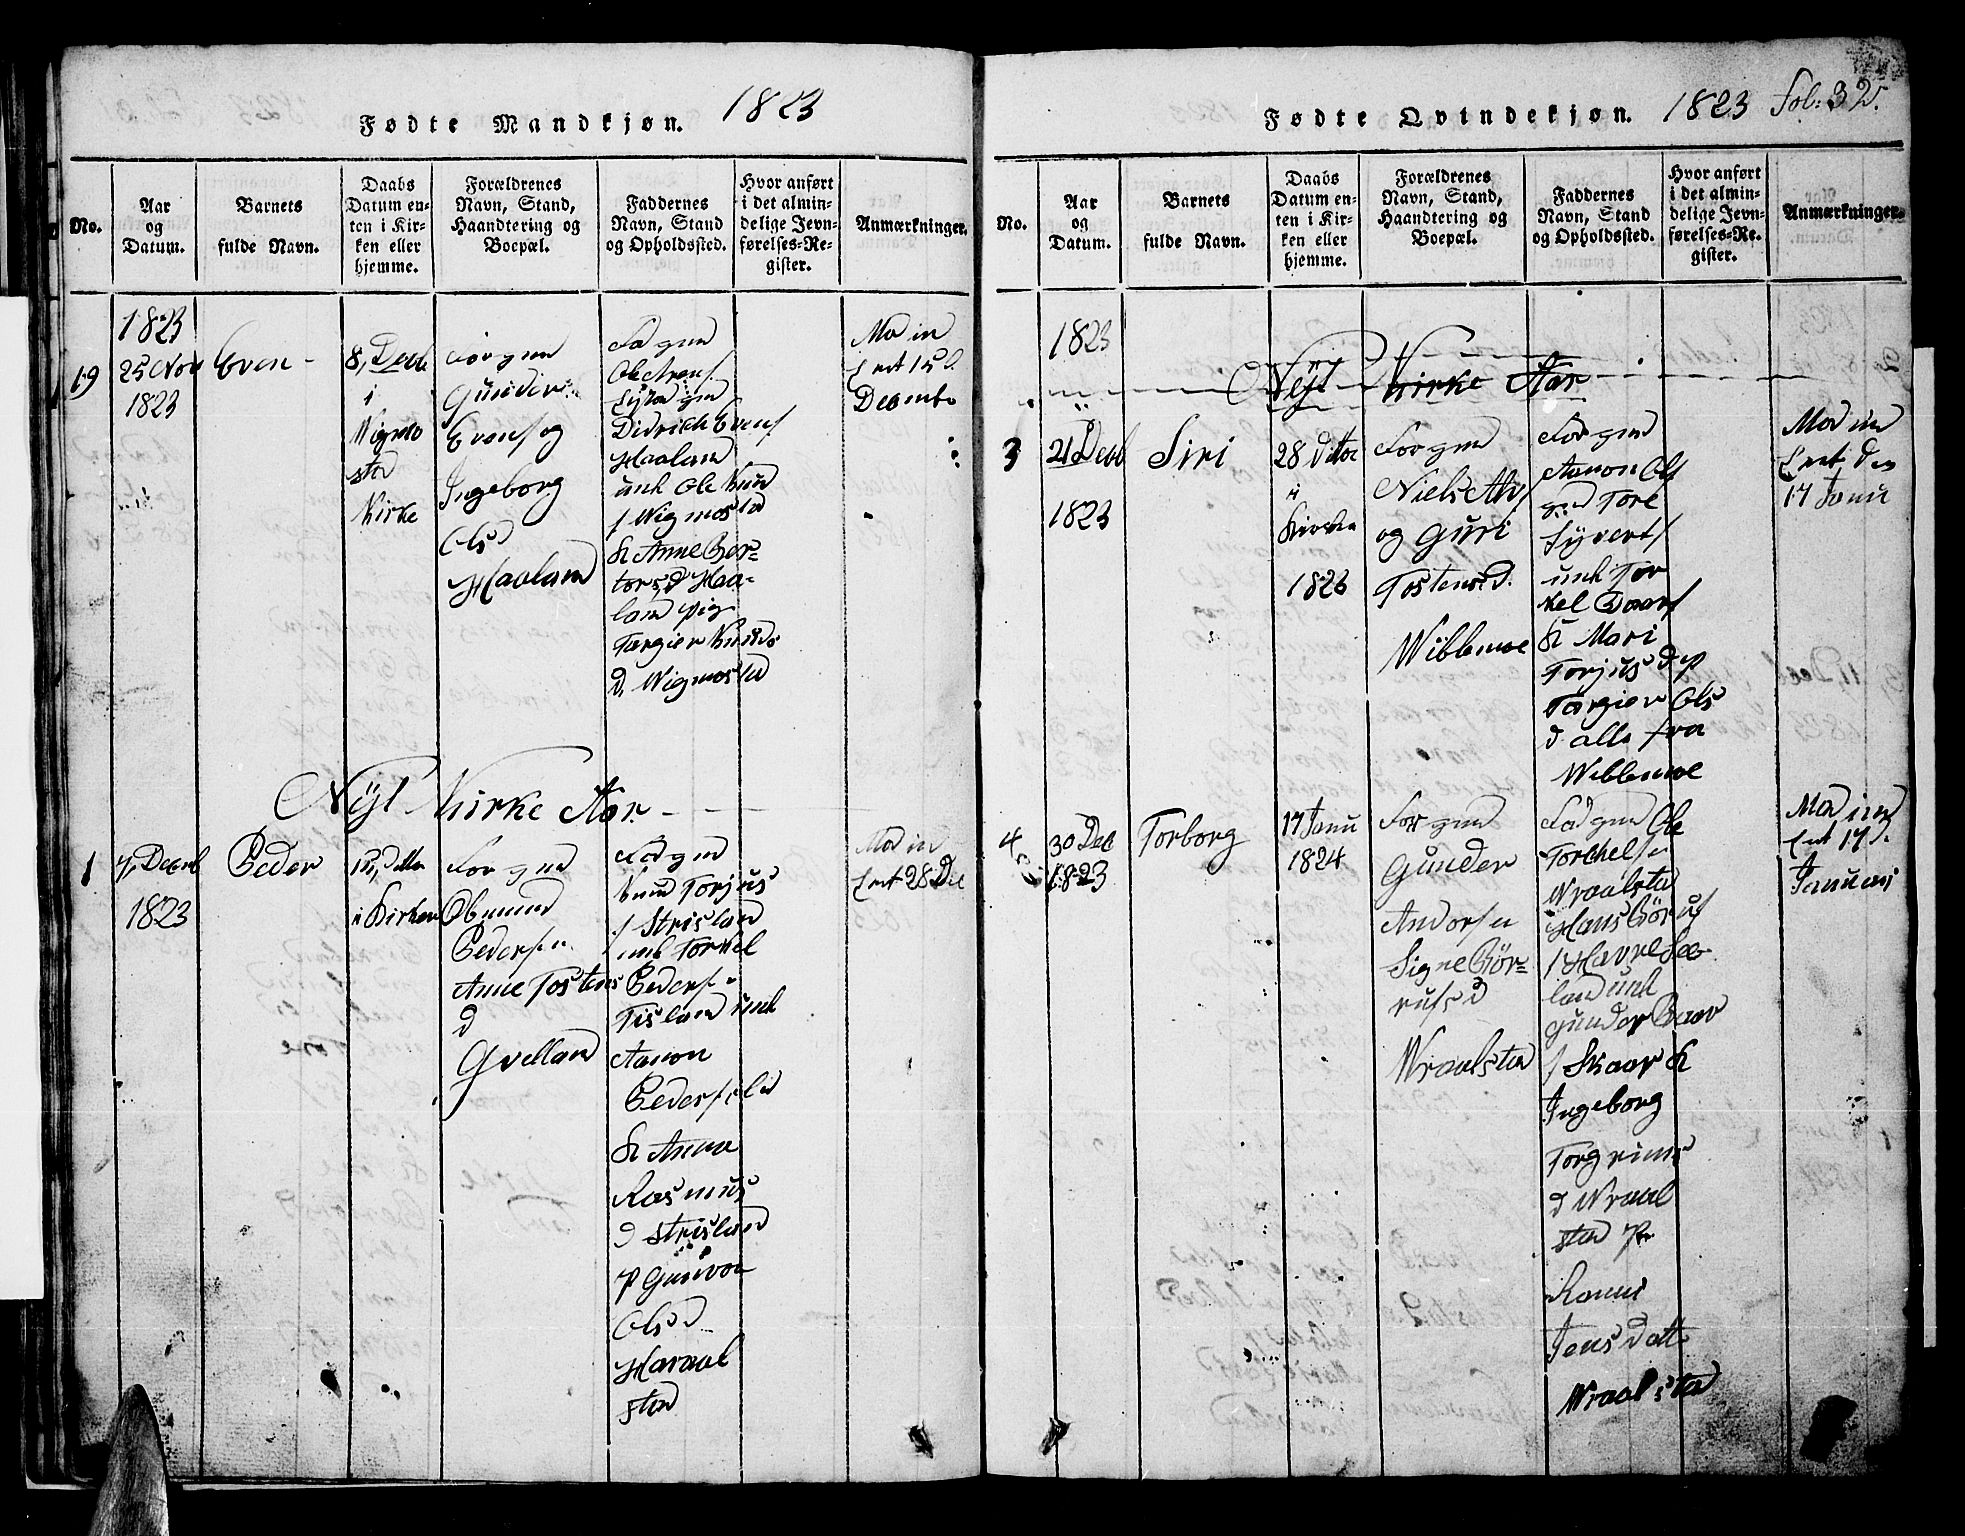 Fødte Mandkjøn. 1823
No.
Aar
og
Datum.
Barnets
fulde Navn.
Daabs
Datum en-
ten i Kir-
ken eller
hjemme.
Forældrenes
Navn, Stand,
Haandtering og
Boepæl.
Faddernes
Navn, Stand
og Opholdssted.
Hvor anført
i det almin-
delige Jevn-
førelses-Re-
gister.
Anmærkninger.
19
1823
25 Nov
1823
Even
8, Decb
i
Wigmo
sta
Kirke
Forgmd
Gunder
Evens og
Ingeborg
Ols d
Haaland
Fad gmd
Ole Arens
gmd
Didrich Evens
Haaland
unk Ole Knud
s Wigmosta
K Anne Ber-
tors d Haa-
land pig
Targier Knuds
d, Wigmosta
Mod in
15 d
Decembr
Nyt Kirke Aar
1
7, Decemb
1823
Peder
i Kirken
For gmd
Obmund
Pedersen
Anne Tostens
d
Gvelland
Fad gmd
Knud Torjus
s Strisland
unk Torkel
Peders
Tisland unk
Aanon
Peders
K Anna
Rasmus
d Strisland
P Gunvor
Ols d
Haraal
stad
Mod in
28 De
Fødte Qvindekjøn. 1823 Fol: 32.
No.
Aar
og
Datum.
Barnets
fulde Navn.
Daabs
Datum en-
ten i Kir-
ken eller
hjemme.
Forældrenes
Navn, Stand,
Haandtering og
Boepæl.
Faddernes
Navn, Stand
og Opholdssted.
Hvor anført
i det almin-
delige Jevn-
førelses-Re-
gister.
Anmærkninger.
1823
Nyt Kirke Aar
3
21 Decb
1823
Siri
28 ditto
i
Kirken
1823
For gmd
Niels
og Guri
Tostensd.
Wibbemoe
Fad gmd
Aanon Ols
gmd Tore
Syverts
unk Tor
kel Baars
K Mari
Torjus d p
Targier Ols
d alle fra
Wibbemoe
Mod in
den
17 Janu
4
30 Dec
1823
Torborg
17 Janu
1824
For gmd
Gunder
Andersen
Signe Bör-
rufs d
Wraalstad
Fad gmd Ole
Torkelsen
Wraalsta
Hans Börus
land unk
Gunder Baar
s Skaar K
Ingeborg
Torgrims
d Wraal
stad P
Ranni
Jens Datt
Wraalsta
Mod in
17 d.
Januari